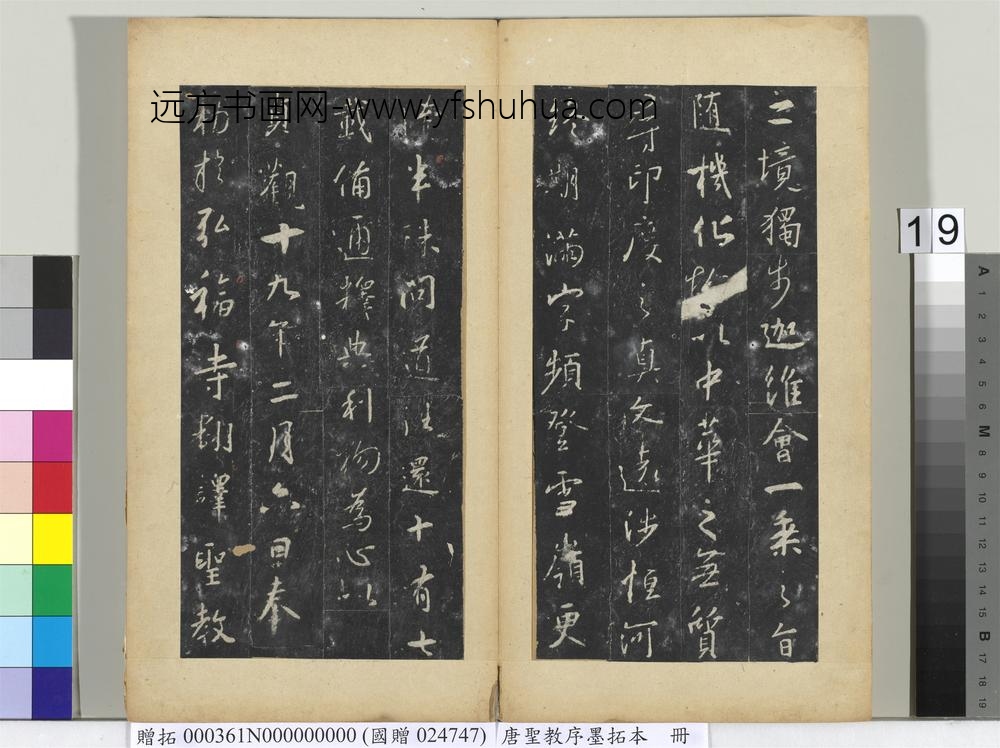 远方书画网-www.yfshuhua.com
之境獨步迦維會一乘之旨
隨機化物以中華之無質
尋印度之真文遠涉恒河
終期滿字頻登雪嶺更
獲半珠問道往還十有七
載備通釋典利物為心以
貞觀十九年二月六日奉
勅於弘福寺翻譯聖教
19
A 1 2 3 4 5 6 M 8 9 10 11 12 13 14 15 B 17 18 19
贈拓 000361N000000000 (國贈 024747) 唐聖教序墨拓本 冊